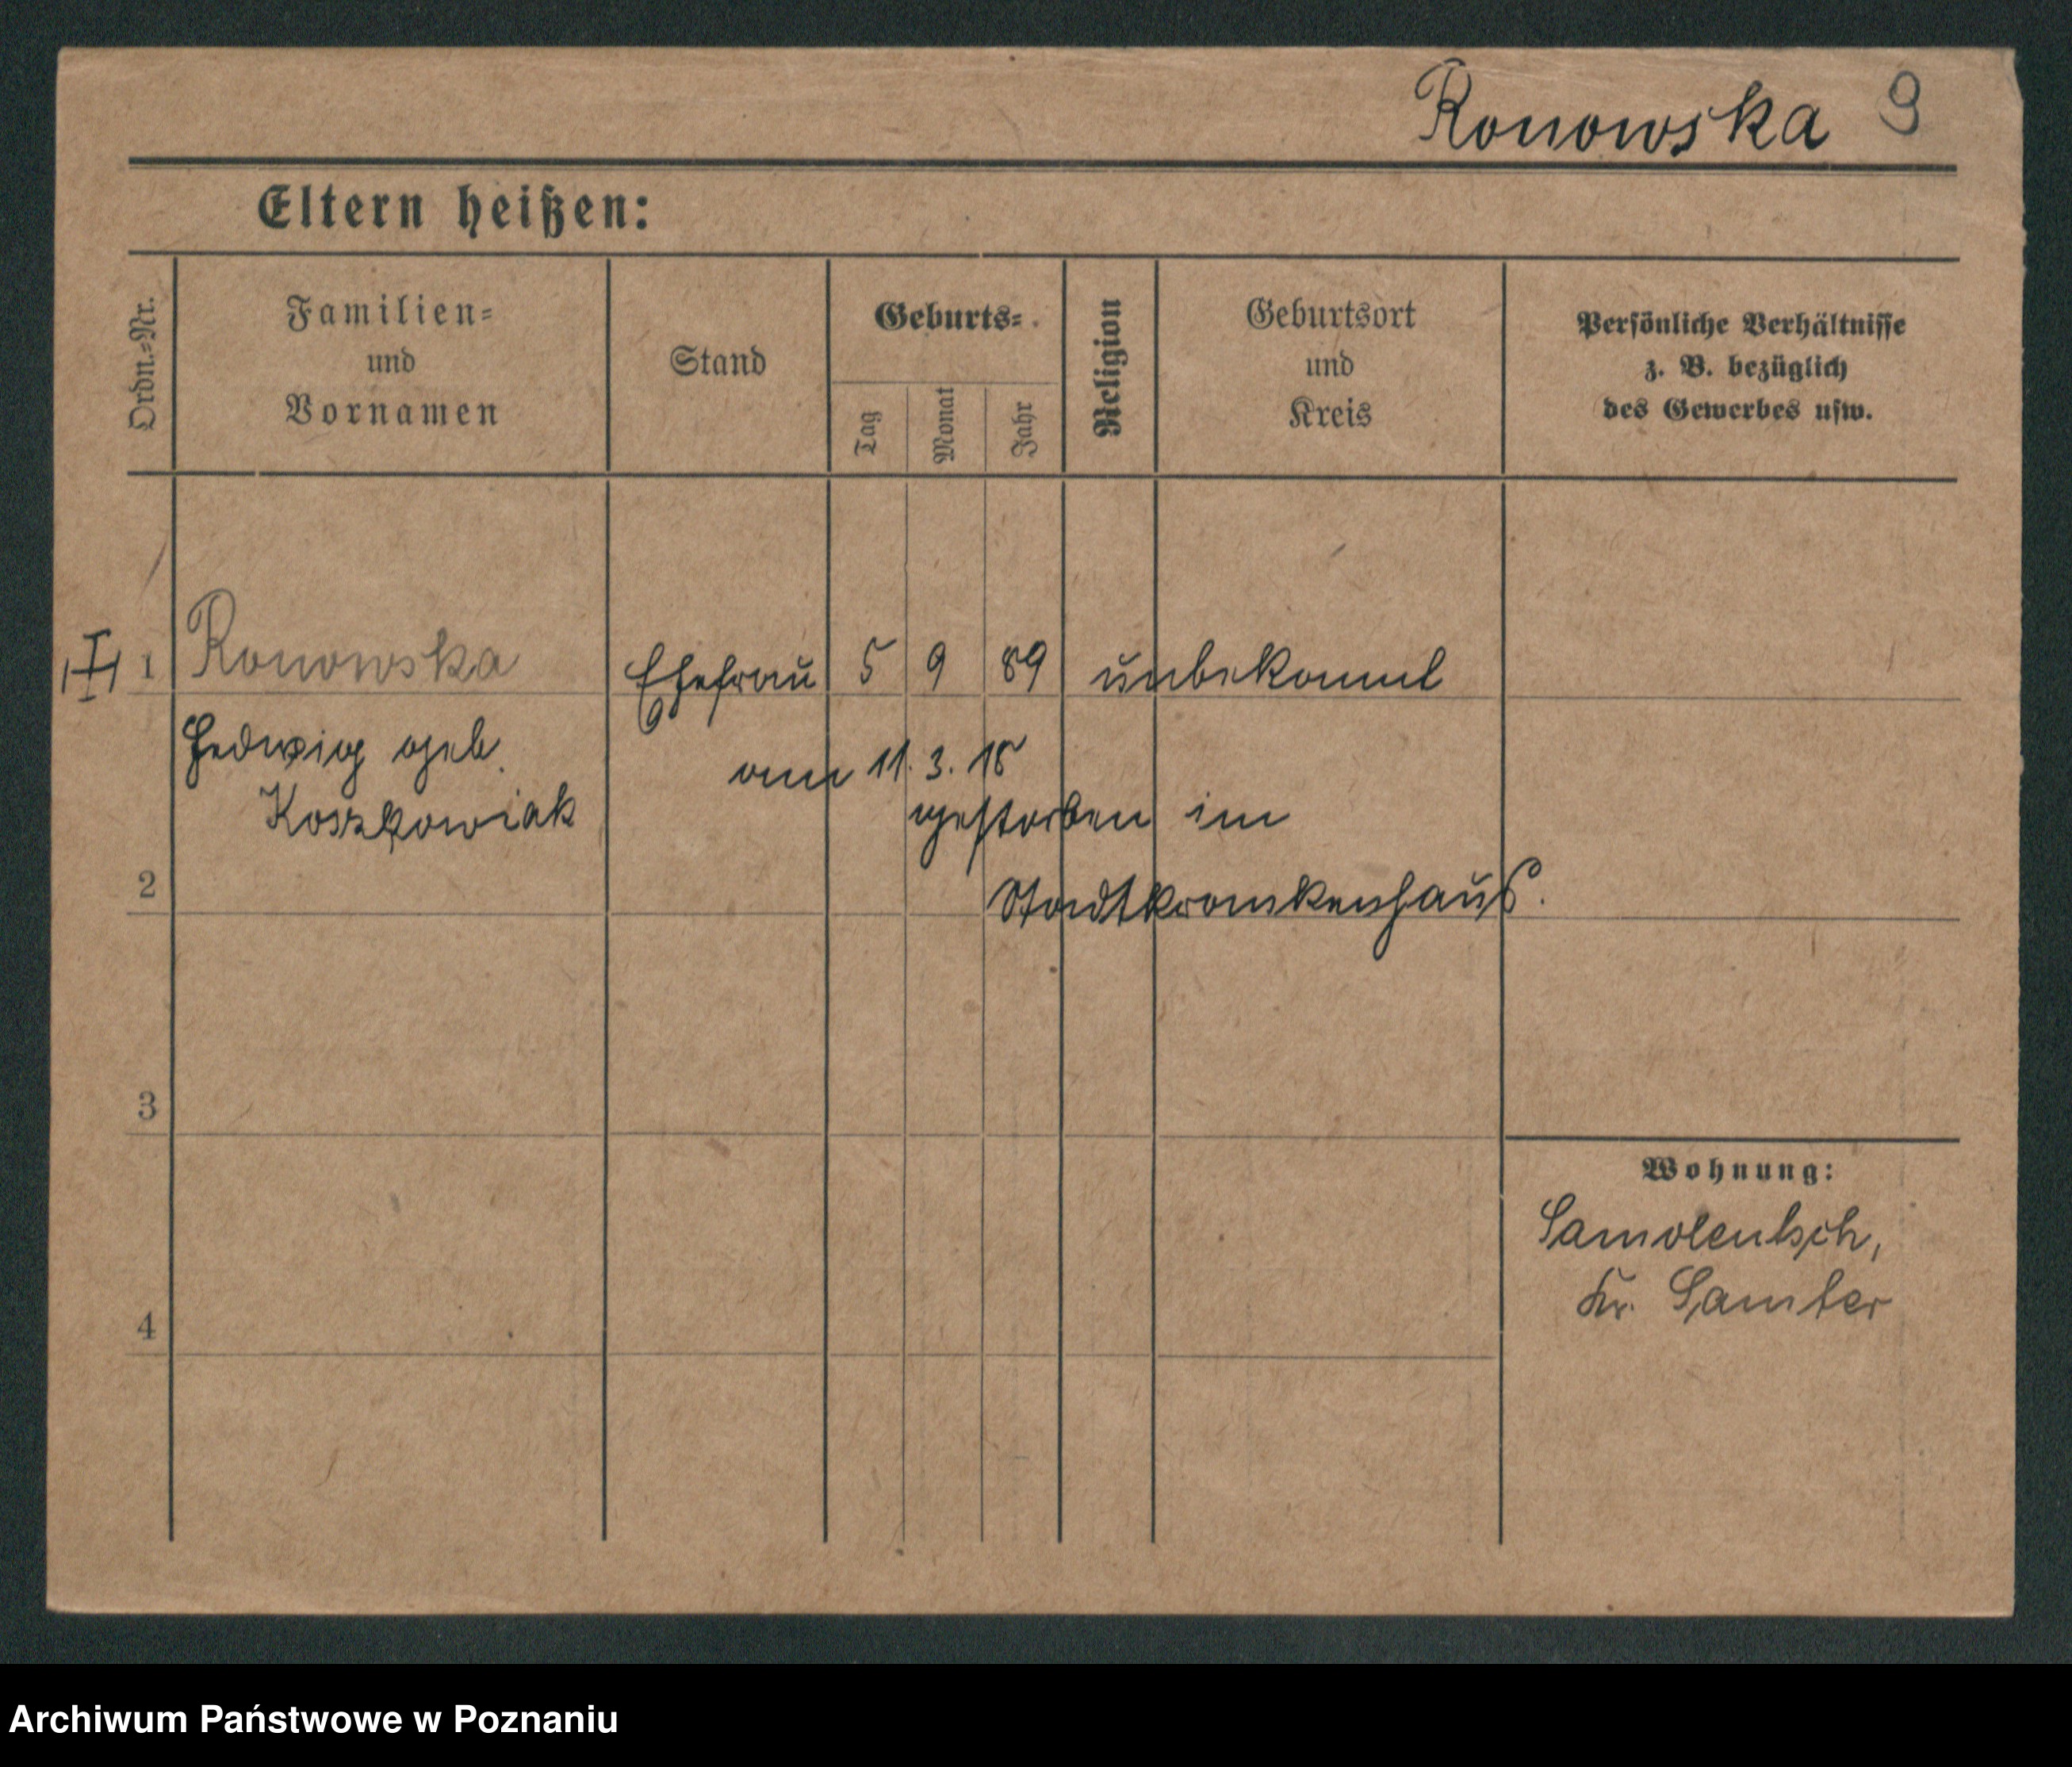 Ronowska 9
Eltern heißen:
Ordn.-Nr.
Familien-
und
Vornamen
Stand
Geburts-
Tag
Monat
Jahr
Religion
Geburtsort
und
Kreis
Persönliche Verhältnisse
z. B. bezüglich
des Gewerbes usw.
1 Ronowska Ehefrau 5 9 89 unbekannt
Hedwig geb.
am 11. 3. 18
Koszkowiak
gestorben im
2
Stadtkrankenhaus.
3
Wohnung:
Samolentsch,
Kr. Samter
4
Archiwum Państwowe w Poznaniu